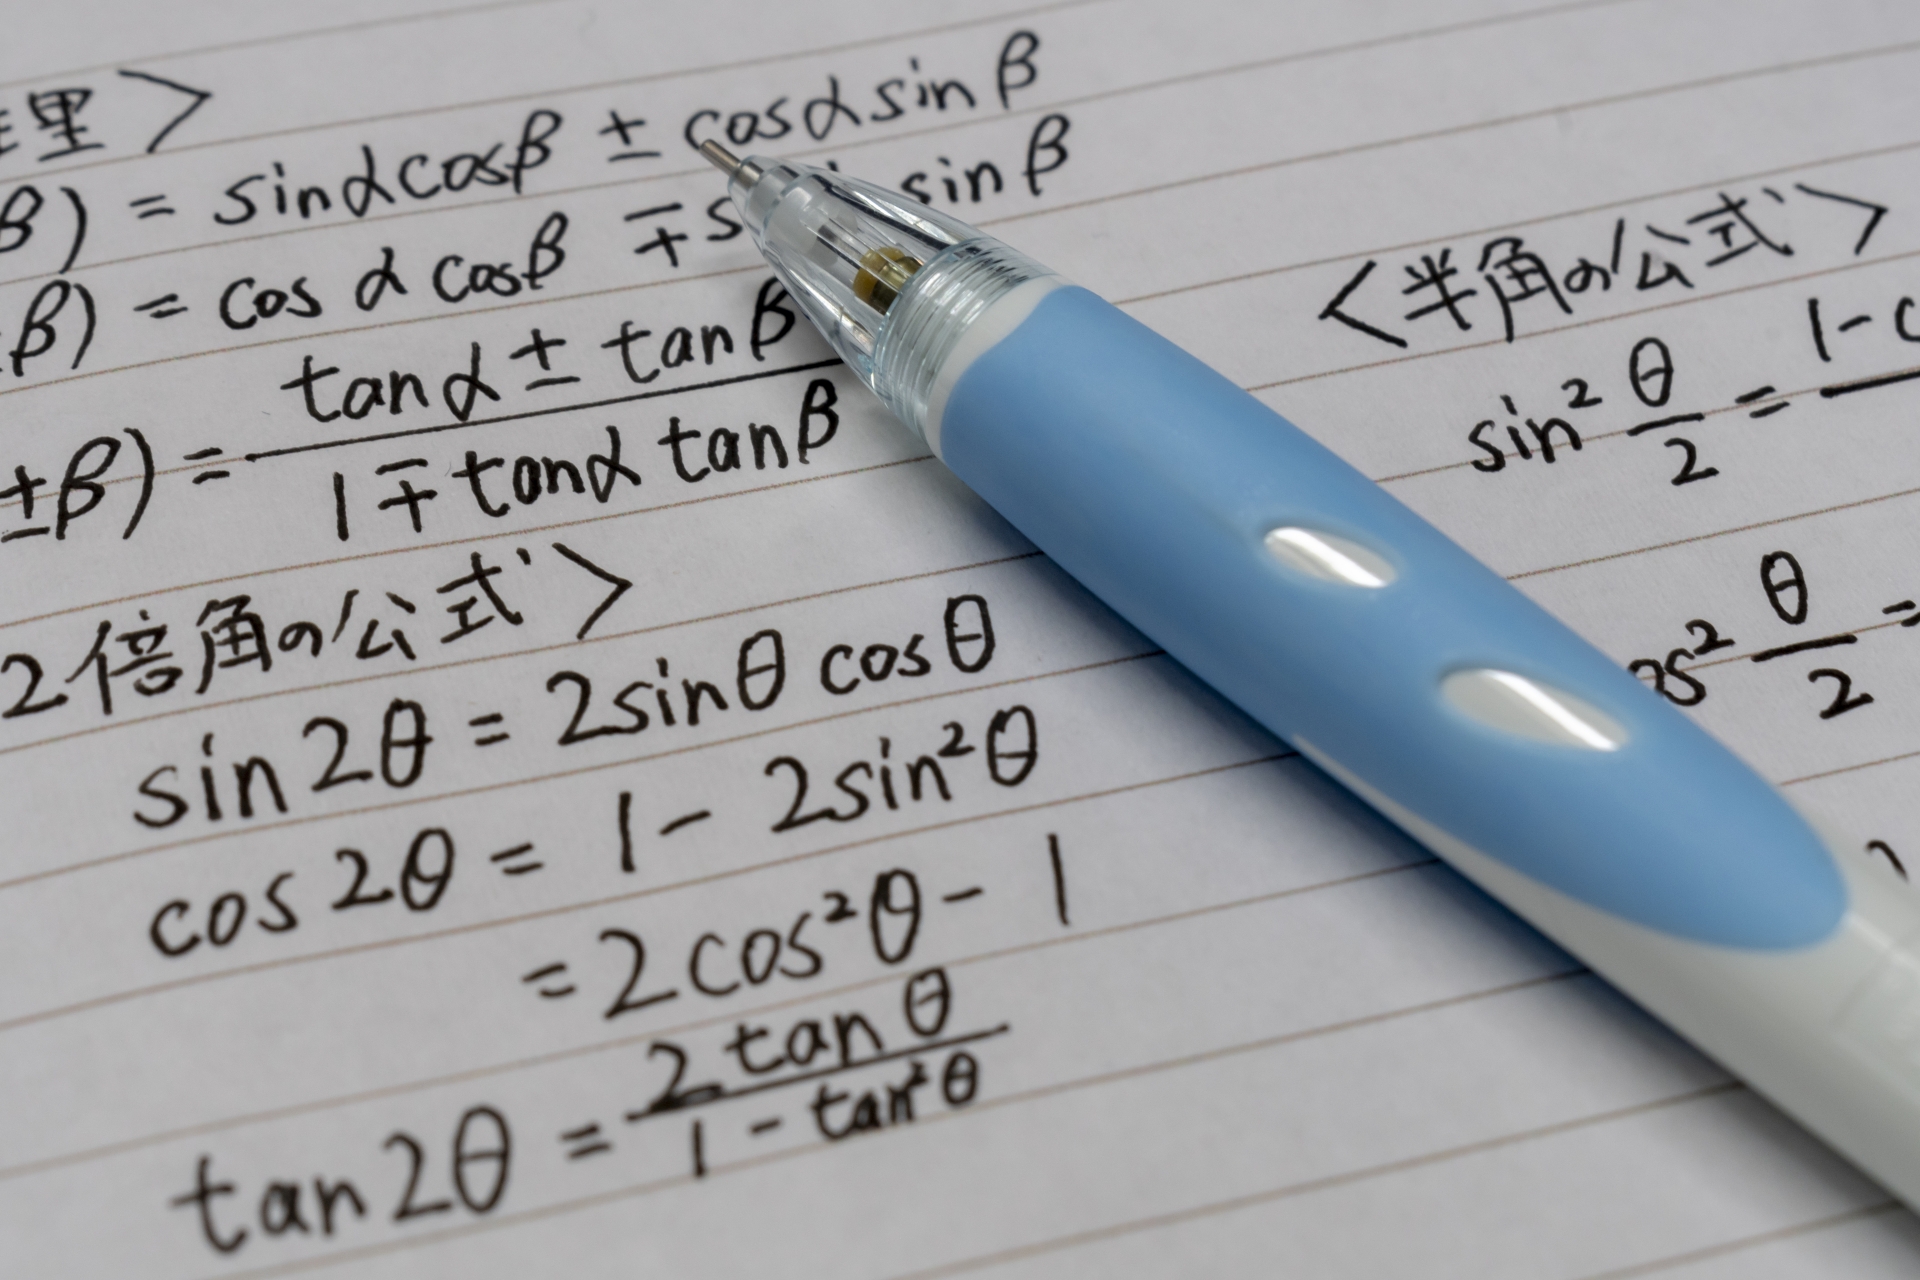 理〉
β) = sinαcosβ ± cosαsinβ
β) = cosαcosβ ∓ s sinβ
±β) = (tanα ± tanβ)/(1 ∓ tanα tanβ)
2倍角の公式〉
sin2θ = 2sinθcosθ
cos2θ = 1 - 2sin²θ
= 2cos²θ - 1
tan2θ = (2tanθ)/(1 - tan²θ)
〈半角の公式〉
sin² θ/2 = 1-c
os² θ/2 =